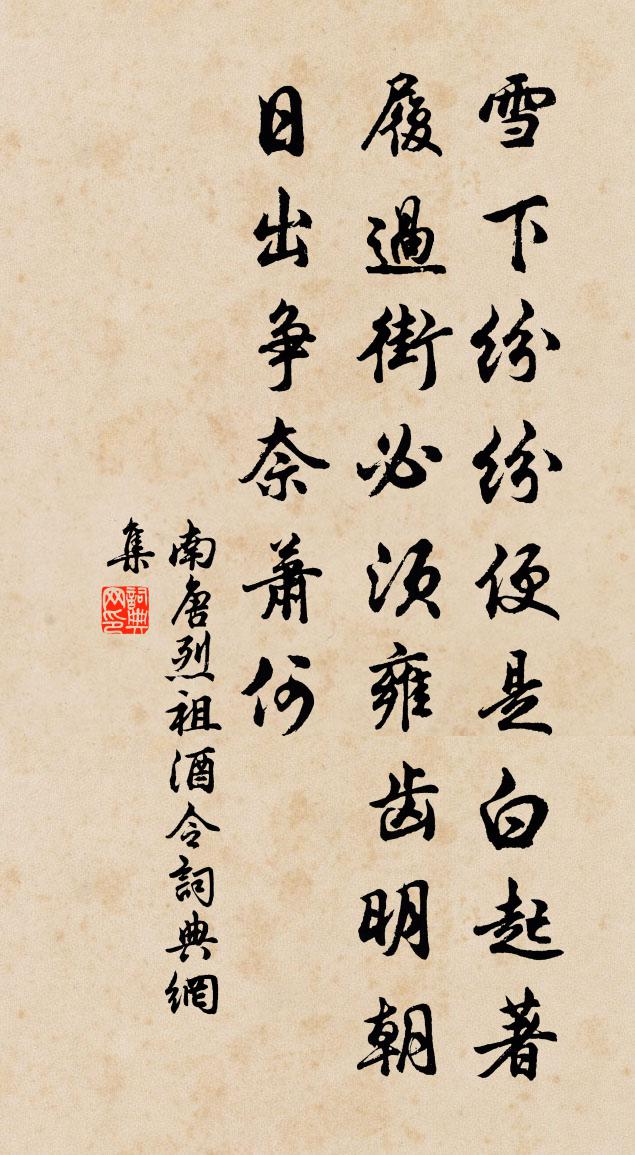 雪下紛紛便是白起著
履過街必須雍齿明朝
日出争奈蕭何
南唐烈祖酒令詞典網
集
詞典
网印